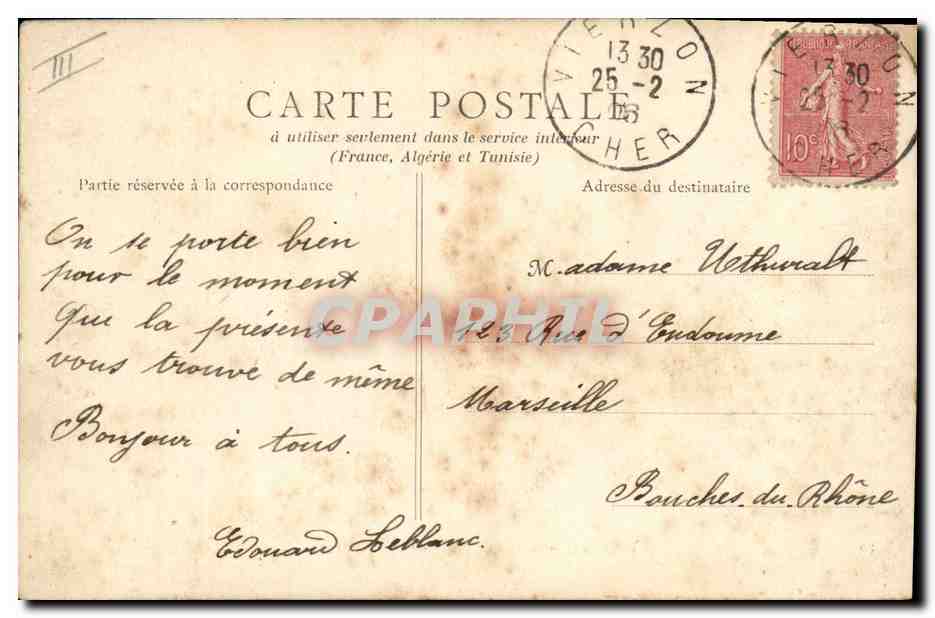 III
CARTE POSTALE
à utiliser seulement dans le service intérieur
(France, Algérie et Tunisie)
VIERZON
13 30
25 -2
CHER
VIERZON
13 30
25 -2
CHER
10c
Partie réservée à la correspondance
Adresse du destinataire
On se porte bien
pour le moment
que la présente
vous trouve de même
Bonjour à tous.
Edouard Leblanc.
M. adame Uthuralt
123 Rue d'Endoume
Marseille
Bouches-du-Rhône
CPAPHIL